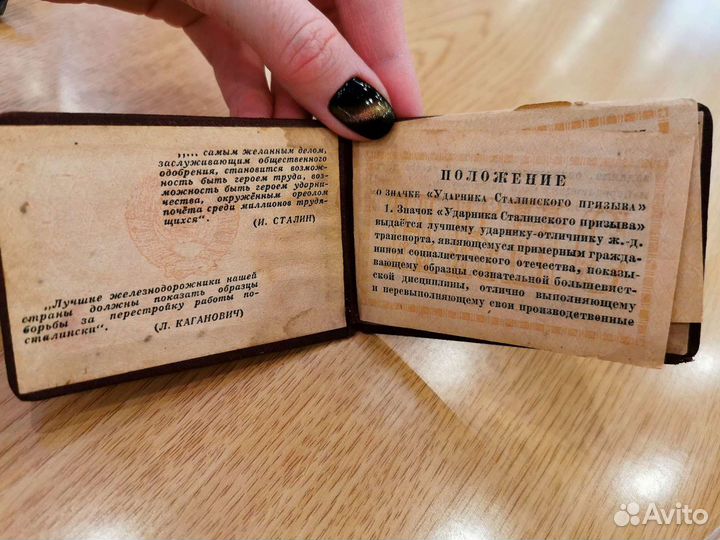 „... самым желанным делом,
заслуживающим общественного
одобрения, становится возмож-
ность быть героем труда, воз-
можность быть героем ударни-
чества, окружённым ореолом
почёта среди миллионов трудя-
щихся“.
(И. СТАЛИН)
„Лучшие железнодорожники нашей
страны должны показать образцы
борьбы за перестройку работы по-
сталински“.
(Л. КАГАНОВИЧ)
ПОЛОЖЕНИЕ
О ЗНАЧКЕ «УДАРНИКА СТАЛИНСКОГО ПРИЗЫВА»
1. Значок «Ударника Сталинского призыва»
выдаётся лучшему ударнику-отличнику ж.-д.
транспорта, являющемуся примерным гражда-
нином социалистического отечества, показы-
вающему образцы сознательной большевист-
ской дисциплины, отлично выполняющему
и перевыполняющему свои производственные
Avito